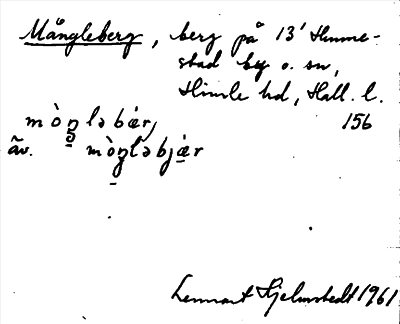 Mångleberg, berg på 13' Himme-
stad by o. sn,
Himle hd, Hall. l.
156
mòŋləbær,
äv. mòŋləbjær
Lennart Hjelmstedt 1961